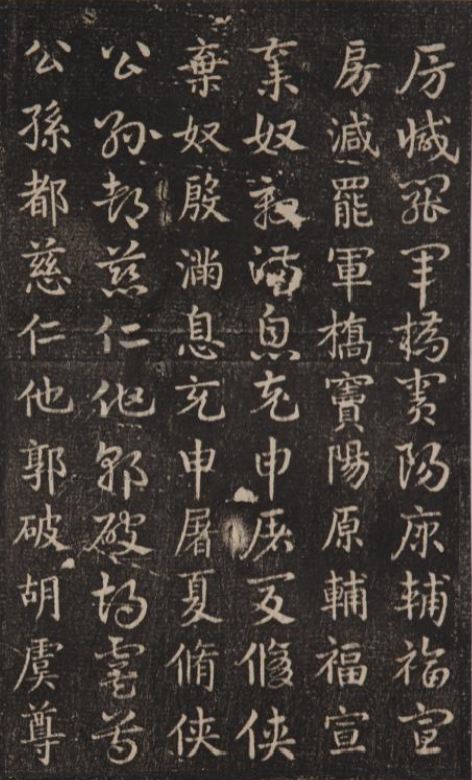 房減罷軍橋竇陽原輔福宣
房減罷軍橋竇陽原輔福宣
棄奴殷滿息充申屠夏脩俠
棄奴殷滿息充申屠夏脩俠
公孫都慈仁他郭破胡虞尊
公孫都慈仁他郭破胡虞尊